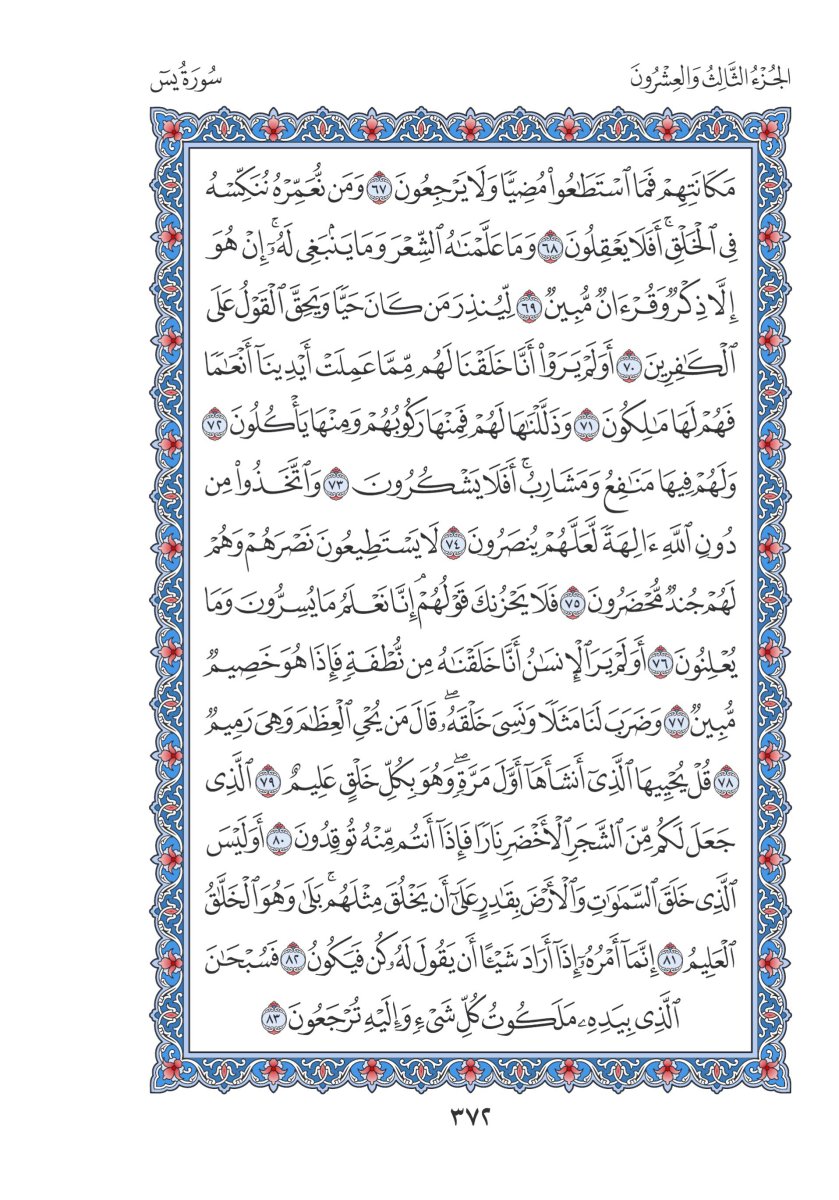 الجُزْءُ الثَّالِثُ وَالعِشْرُونَ
سُورَةُ يسٓ
مَكَانَتِهِمْ فَمَا ٱسْتَطَٰعُوا۟ مُضِيًّا وَلَا يَرْجِعُونَ ٦٧ وَمَن نُّعَمِّرْهُ نُنَكِّسْهُ
فِى ٱلْخَلْقِ ۚ أَفَلَا يَعْقِلُونَ ٦٨ وَمَا عَلَّمْنَٰهُ ٱلشِّعْرَ وَمَا يَنۢبَغِى لَهُۥٓ ۚ إِنْ هُوَ
إِلَّا ذِكْرٌ وَقُرْءَانٌ مُّبِينٌ ٦٩ لِّيُنذِرَ مَن كَانَ حَيًّا وَيَحِقَّ ٱلْقَوْلُ عَلَى
ٱلْكَٰفِرِينَ ٧٠ أَوَلَمْ يَرَوْا۟ أَنَّا خَلَقْنَا لَهُم مِّمَّا عَمِلَتْ أَيْدِينَآ أَنْعَٰمًا
فَهُمْ لَهَا مَٰلِكُونَ ٧١ وَذَلَّلْنَٰهَا لَهُمْ فَمِنْهَا رَكُوبُهُمْ وَمِنْهَا يَأْكُلُونَ ٧٢
وَلَهُمْ فِيهَا مَنَٰفِعُ وَمَشَارِبُ ۚ أَفَلَا يَشْكُرُونَ ٧٣ وَٱتَّخَذُوا۟ مِن
دُونِ ٱللَّهِ ءَالِهَةً لَّعَلَّهُمْ يُنصَرُونَ ٧٤ لَا يَسْتَطِيعُونَ نَصْرَهُمْ وَهُمْ
لَهُمْ جُندٌ مُّحْضَرُونَ ٧٥ فَلَا يَحْزُنكَ قَوْلُهُمْ ۘ إِنَّا نَعْلَمُ مَا يُسِرُّونَ وَمَا
يُعْلِنُونَ ٧٦ أَوَلَمْ يَرَ ٱلْإِنسَٰنُ أَنَّا خَلَقْنَٰهُ مِن نُّطْفَةٍ فَإِذَا هُوَ خَصِيمٌ
مُّبِينٌ ٧٧ وَضَرَبَ لَنَا مَثَلًا وَنَسِىَ خَلْقَهُۥ ۖ قَالَ مَن يُحْىِ ٱلْعِظَٰمَ وَهِىَ رَمِيمٌ
٧٨ قُلْ يُحْيِيهَا ٱلَّذِىٓ أَنشَأَهَآ أَوَّلَ مَرَّةٍ ۖ وَهُوَ بِكُلِّ خَلْقٍ عَلِيمٌ ٧٩ ٱلَّذِى
جَعَلَ لَكُم مِّنَ ٱلشَّجَرِ ٱلْأَخْضَرِ نَارًا فَإِذَآ أَنتُم مِّنْهُ تُوقِدُونَ ٨٠ أَوَلَيْسَ
ٱلَّذِى خَلَقَ ٱلسَّمَٰوَٰتِ وَٱلْأَرْضَ بِقَٰدِرٍ عَلَىٰٓ أَن يَخْلُقَ مِثْلَهُم ۚ بَلَىٰ وَهُوَ ٱلْخَلَّٰقُ
ٱلْعَلِيمُ ٨١ إِنَّمَآ أَمْرُهُۥٓ إِذَآ أَرَادَ شَيْـًٔا أَن يَقُولَ لَهُۥ كُن فَيَكُونُ ٨٢ فَسُبْحَٰنَ
ٱلَّذِى بِيَدِهِۦ مَلَكُوتُ كُلِّ شَىْءٍ وَإِلَيْهِ تُرْجَعُونَ ٨٣
٣٧٢